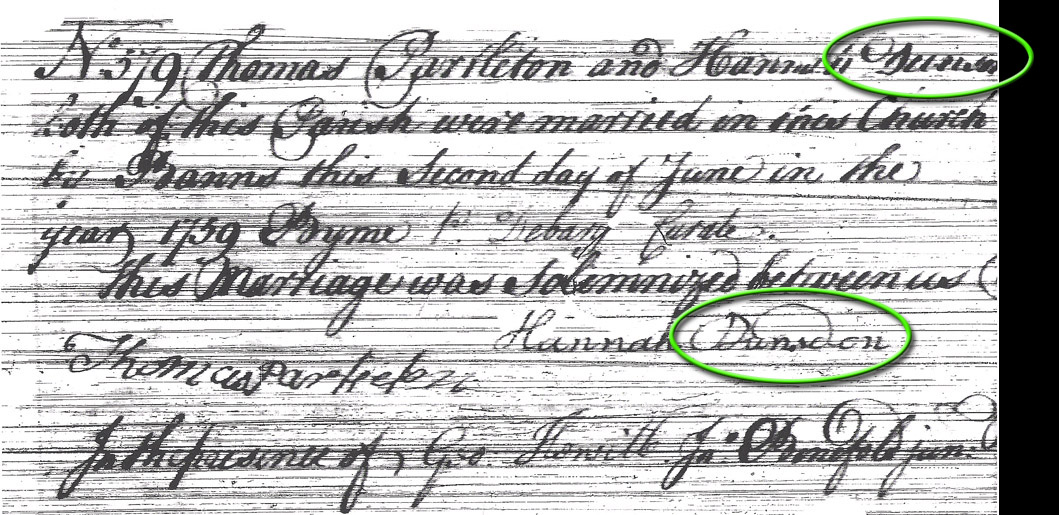 No. 579 Thomas Partleton and Hannah
both of this Parish were married in this Church
by Banns this Second day of June in the
year 1759 By me Pr. Debary Curate.
This Marriage was Solemnized between us
Hannah Dunsdon
Thomas Partleton
In the presence of Geo. Howitt Jno. jun.